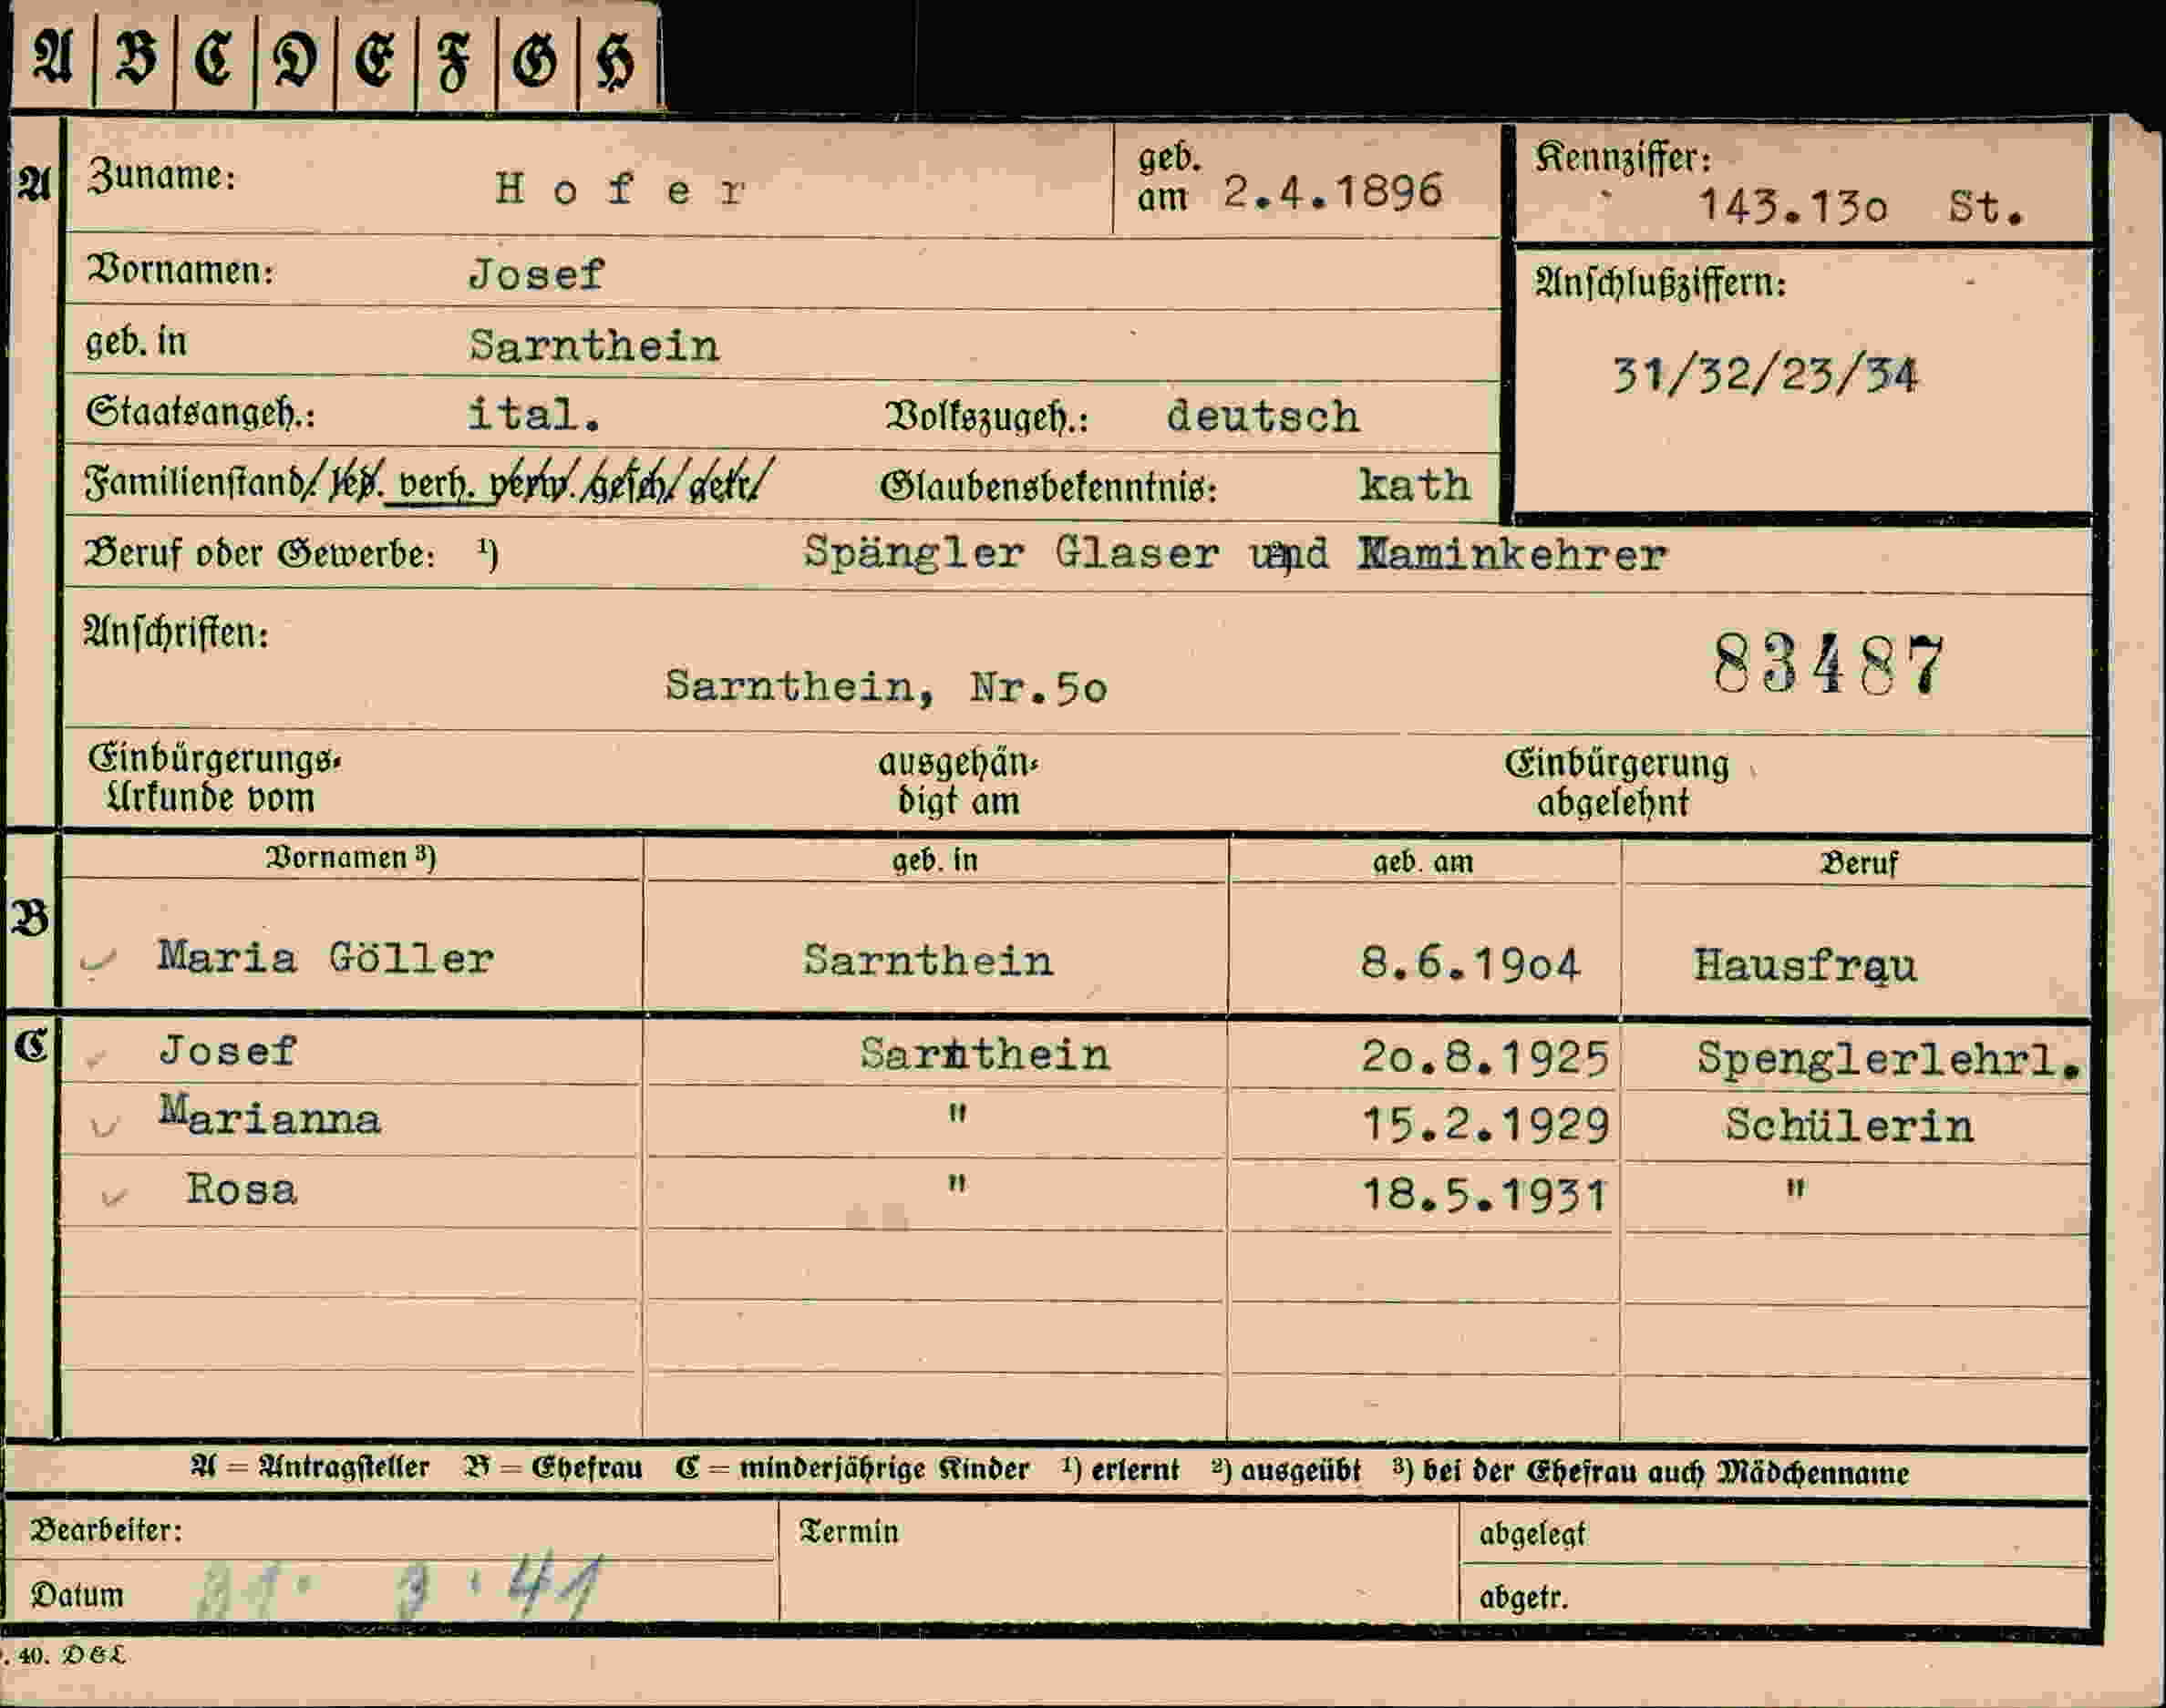 A B C D E F G H
A Zuname: Hofer geb. am 2.4.1896 Kennziffer: 143.13o St.
Vornamen: Josef Anschlußziffern:
geb. in Sarnthein 31/32/23/34
Staatsangeh.: ital. Volkszugeh.: deutsch
Familienstand/led. verh. verw. gesch/ getr/ Glaubensbekenntnis: kath
Beruf oder Gewerbe: ¹) Spängler Glaser und Kaminkehrer
Anschriften: 83487
Sarnthein, Nr.5o
Einbürgerungs- ausgehän- Einbürgerung
Urkunde vom digt am abgelehnt
Vornamen ³) geb. in geb. am Beruf
B Maria Göller Sarnthein 8.6.19o4 Hausfrau
C Josef Sarnthein 2o.8.1925 Spenglerlehrl.
Marianna " 15.2.1929 Schülerin
Rosa " 18.5.1931 "
A = Antragsteller B = Ehefrau C = minderjährige Kinder ¹) erlernt ²) ausgeübt ³) bei der Ehefrau auch Mädchenname
Bearbeiter: Termin abgelegt
Datum 41 abgetr.
. 40. D&L